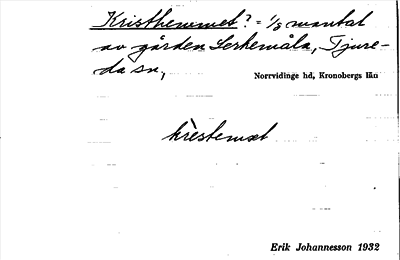 Kristhemmet? = 1/8 mantal
av gården Lerkemåla, Tjure-
da sn,
Norrvidinge hd, Kronobergs län
krèstemœt
Erik Johannesson 1932